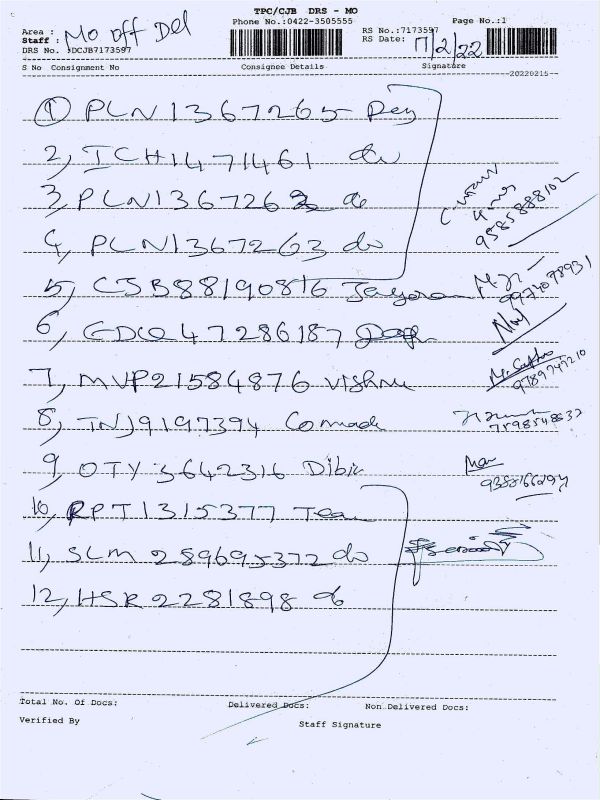 TPC/CJB DRS - MO
Phone No.:0422-3505555 Page No.:1
Area : Mo off Del
Staff :
DRS No. :DCJB7173597
RS No.:7173597
RS Date: 17/2/22
S No Consignment No Consignee Details Signature
20220215
1 PLN1367265
2, ICH1471461 do
3, PLN1367262 do
4, PLN1367263 do
9585888102
5, CJB88190816 Jayaram
9974078931
6, EDQ47286187
7, MVP21584876 Vishnu
9789749210
8, TNJ9197394 Comade
7598548632
9, OTY3642316 Dibin
10, RPT1315377 Team
11, SLM289695372 do
12, HSR2281898 do
Total No. Of Docs: Delivered Docs: Non Delivered Docs:
Verified By Staff Signature